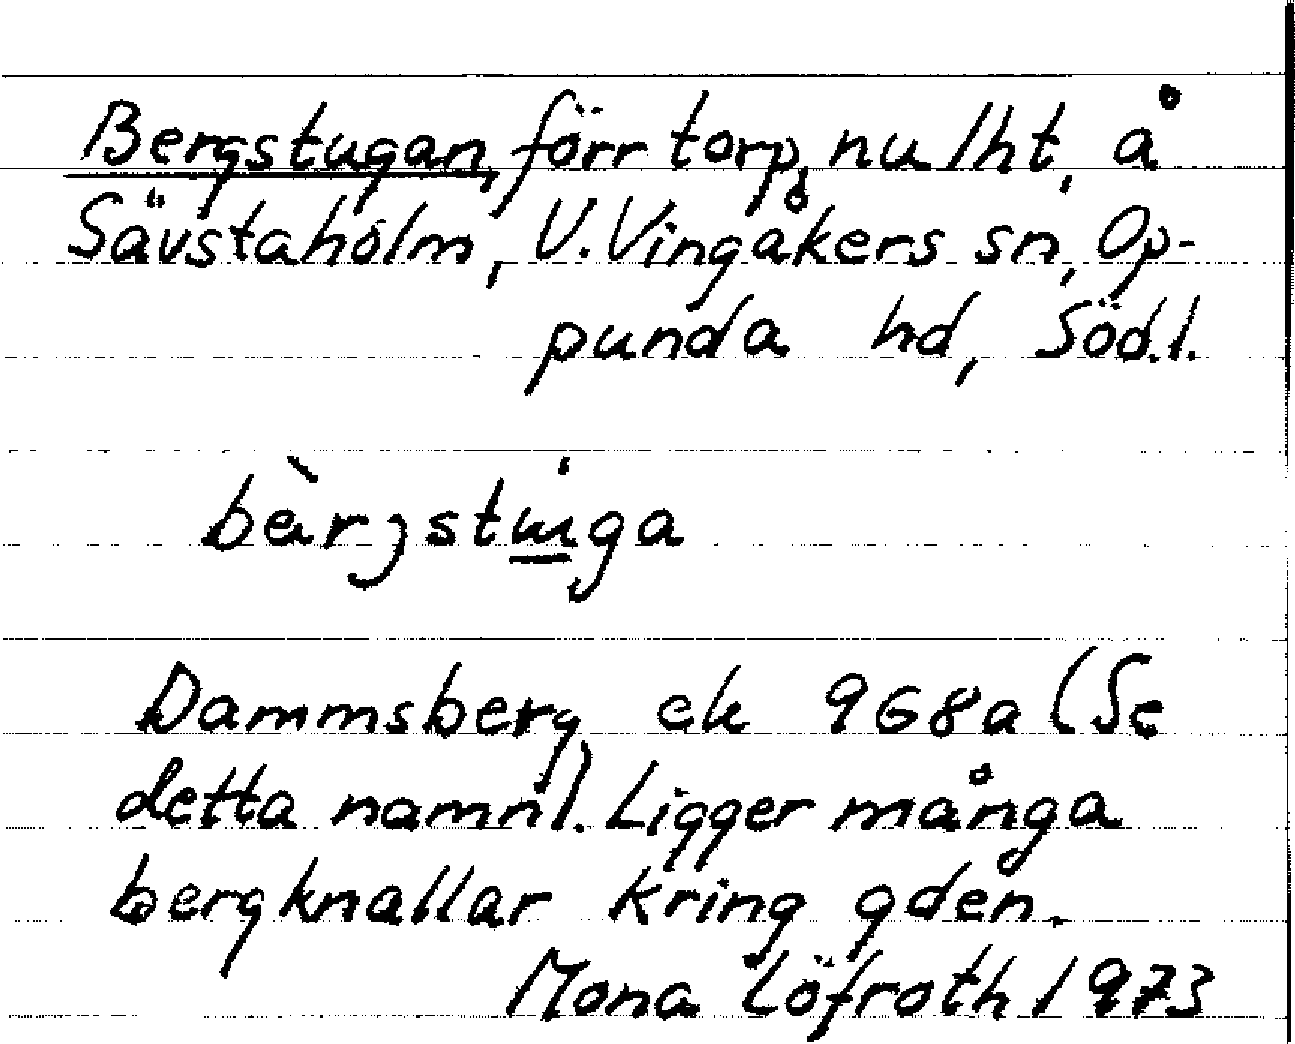 Bergstugan, förr torp, nu lht, å
Sävstaholm, V. Vingåkers sn, Op-
punda hd, Södl.
Dammsberg ek 968a (Se
detta namn). Ligger många
bergknallar kring gden.
Mona Löfroth 1973